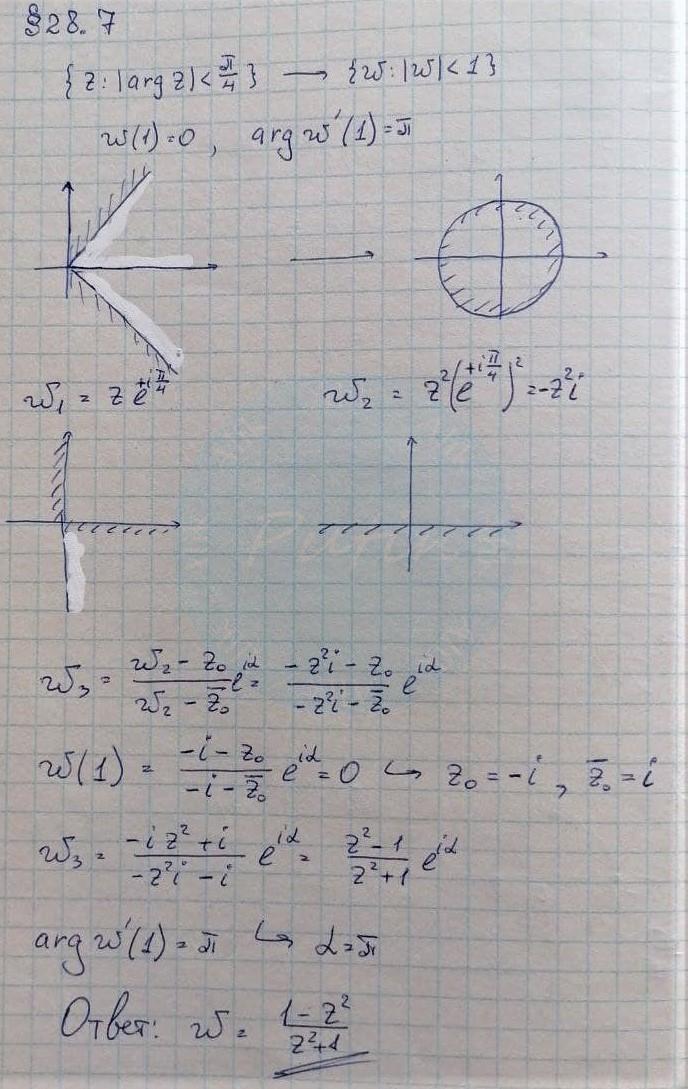 §28.7
{z: |arg z| < π/4} → {w: |w| < 1}
w(1) = 0, arg w'(1) = π
w₁ = z e^{+iπ/4} w₂ = z²(e^{+iπ/4})² = -z²i
w₃ = (w₂ - z₀)/(w₂ - z̄₀) e^{iα} = (-z²i - z₀)/(-z²i - z̄₀) e^{iα}
w(1) = (-i - z₀)/(-i - z̄₀) e^{iα} = 0 ↪ z₀ = -i, z̄₀ = i
w₃ = (-i z² + i)/(-z²i - i) e^{iα} = (z² - 1)/(z² + 1) e^{iα}
arg w'(1) = π ↪ α = π
Ответ: w = (1 - z²)/(z² + 1)